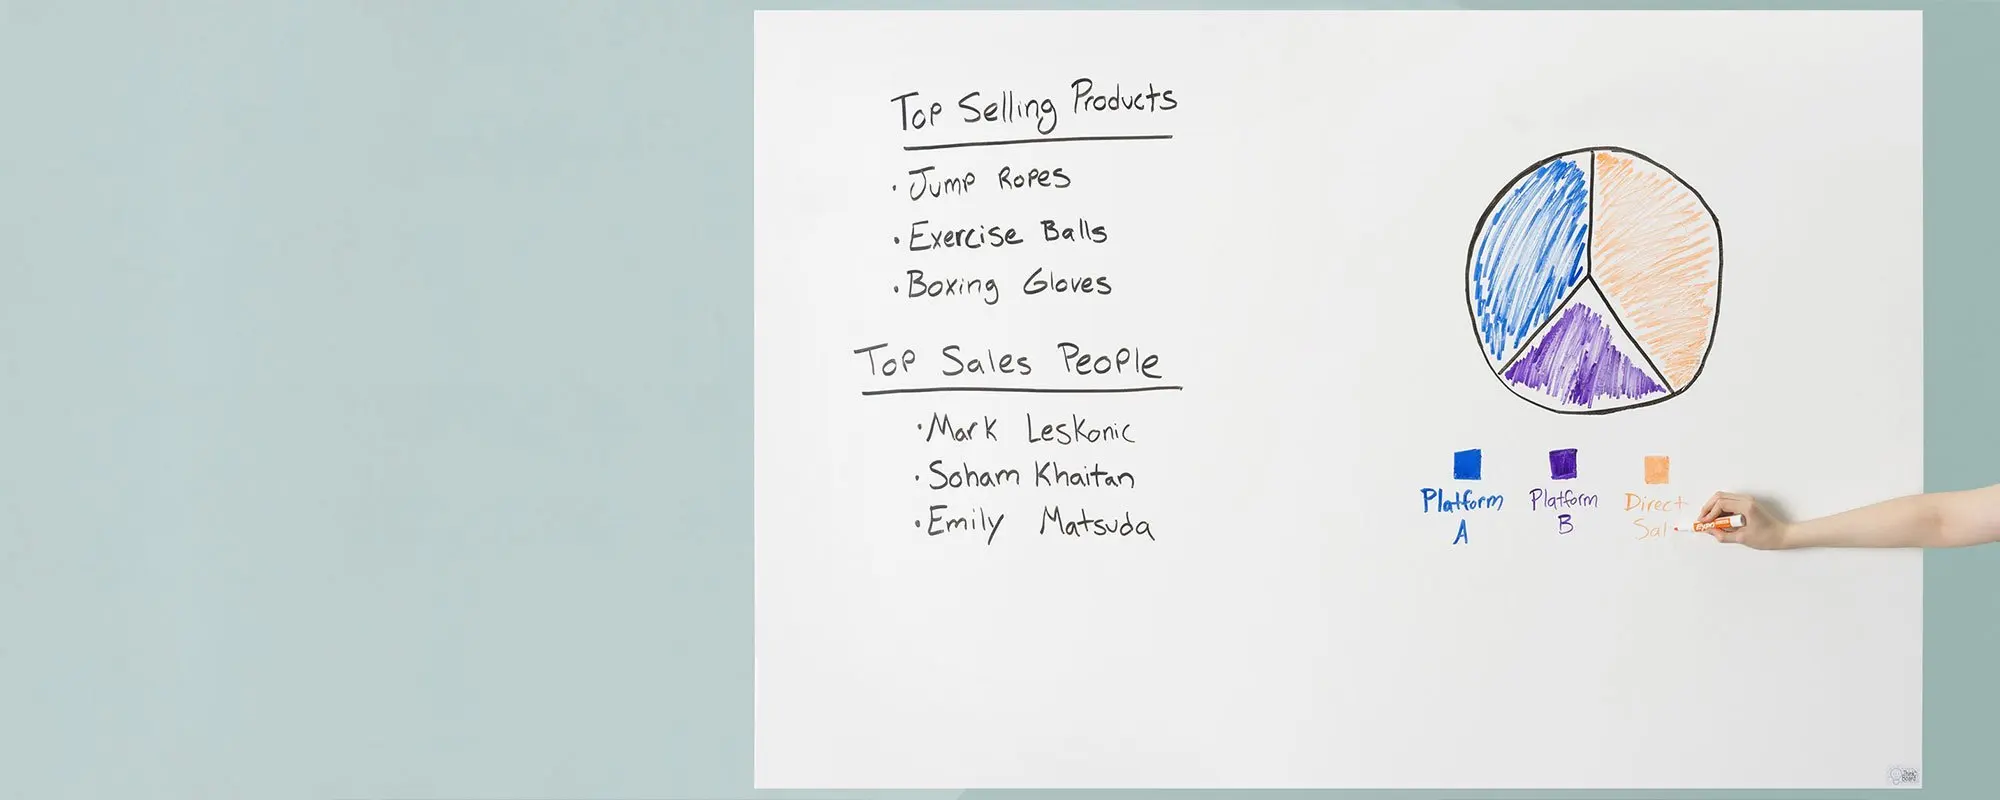 Top Selling Products
• Jump Ropes
• Exercise Balls
• Boxing Gloves
Top Sales People
• Mark Leskonic
• Soham Khaitan
• Emily Matsuda
Platform
A
Platform
B
Direct
Sal
EXPO
Think
Board